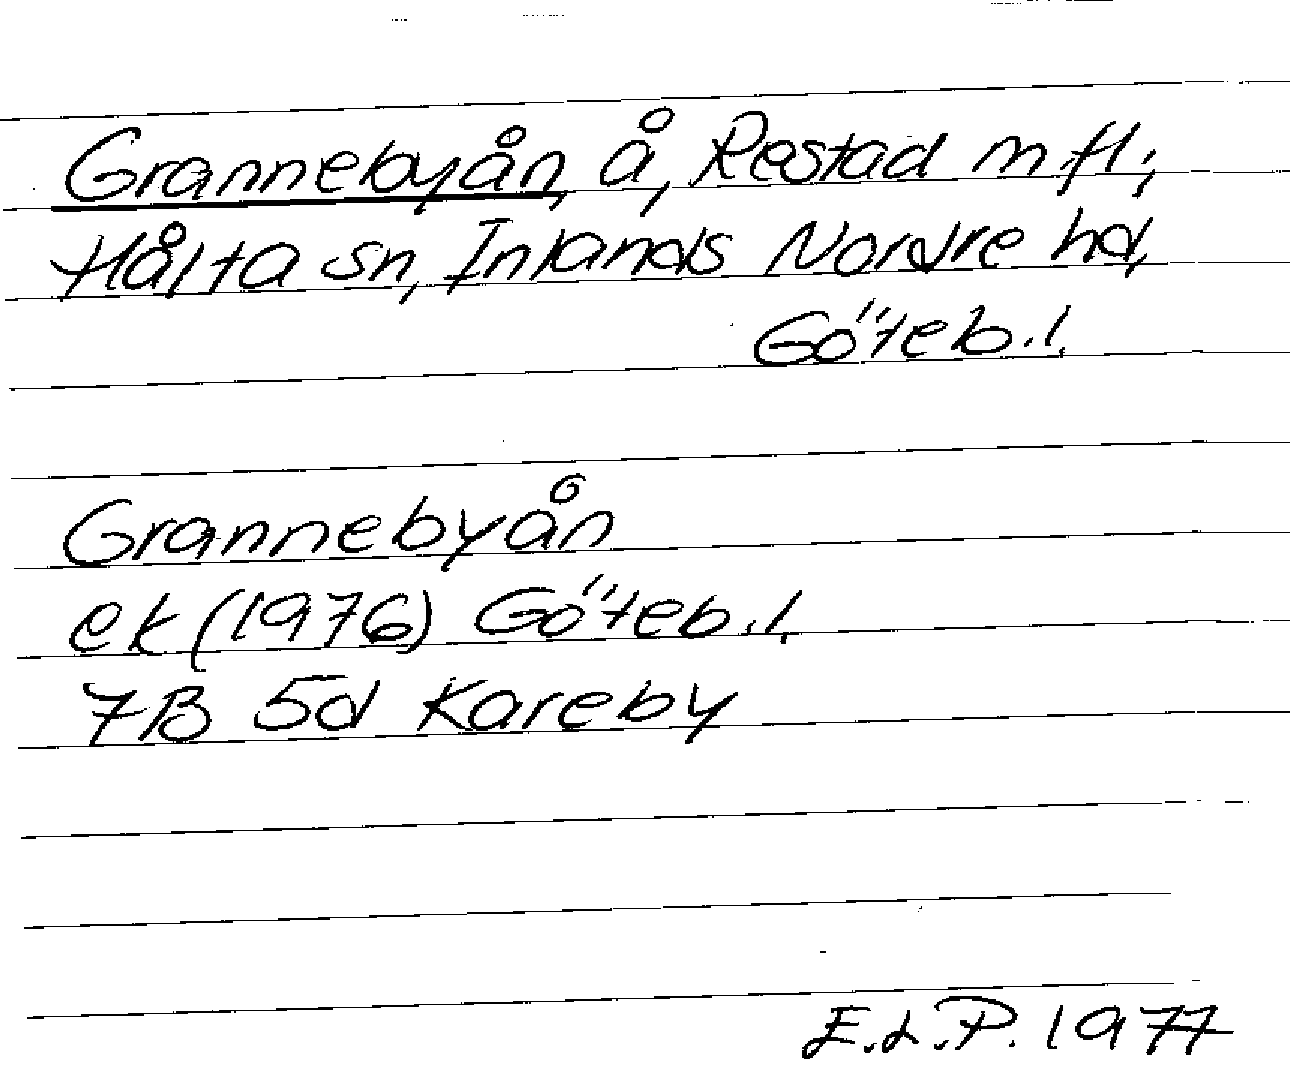 Grannebyån, å, Restad m fl;
Hålta sn, Inlands Nordre hd,
Göteb.l.
Grannebyån
ek (1976) Göteb.l.
7B 5d Kareby
E.L.P. 1977